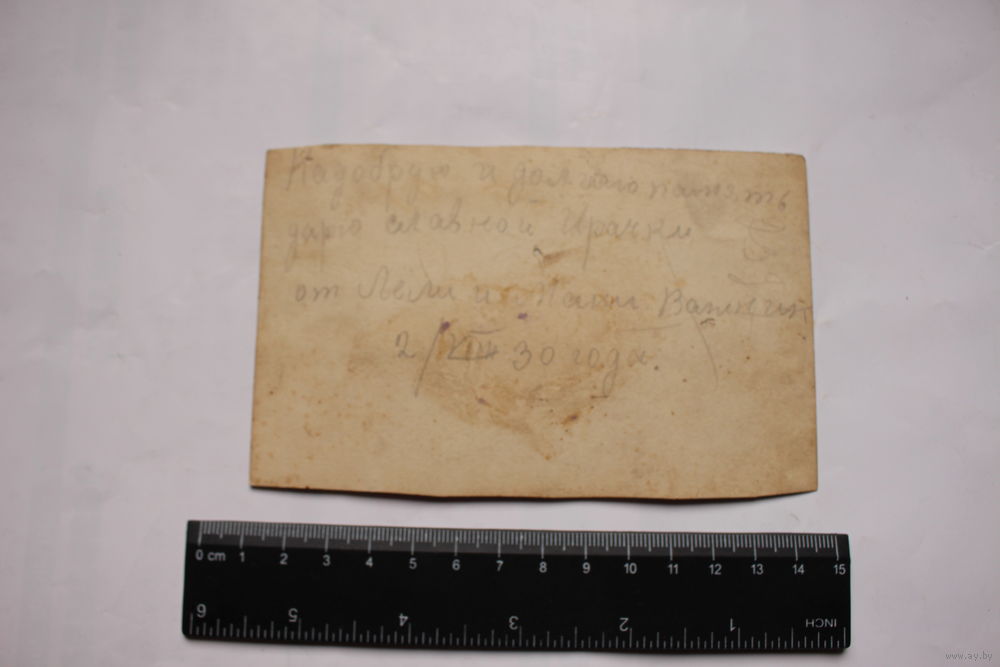 На добрую и долгую память
дарю славной Ирачки
от Лели и Мани
2/VIII 30 года.
0 cm 1 2 3 4 5 6 7 8 9 10 11 12 13 14 15
6 5 4 3 2 1 INCH
www.ay.by